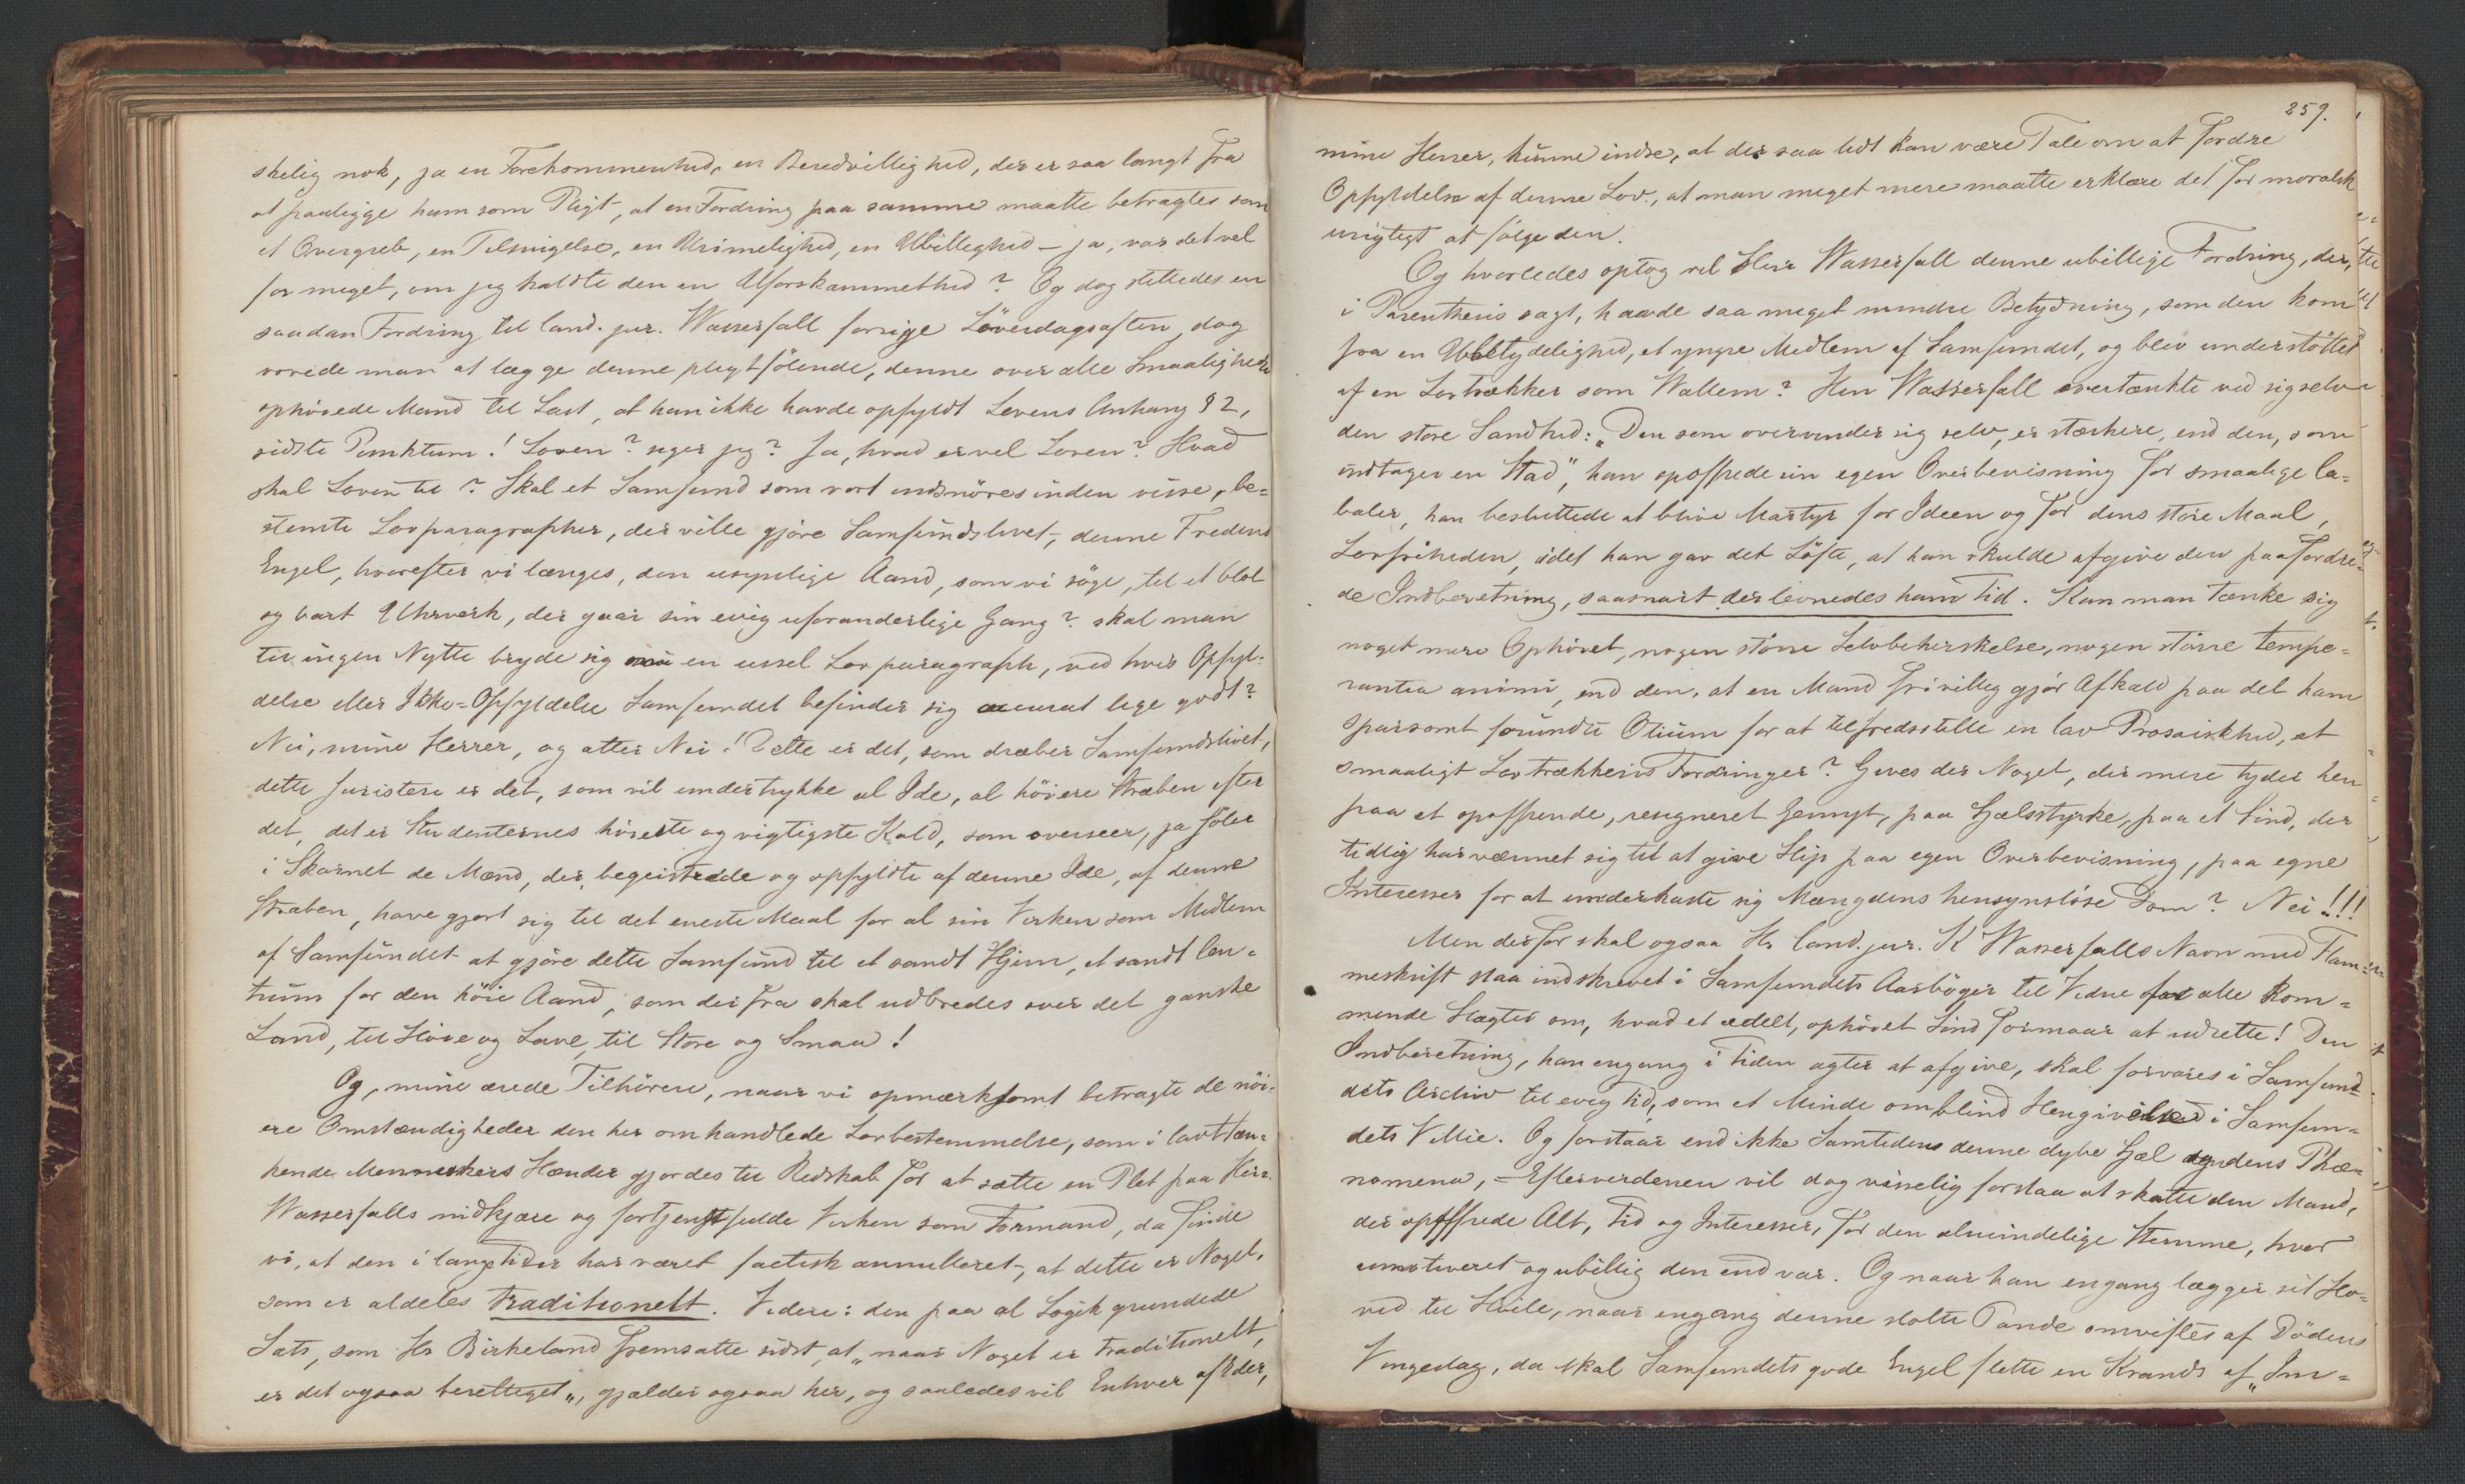 skelig nok, ja en Forekommenhed, en Beredvillighed, der er saa langt fra
at paaligge ham som Pligt, at en Fordring paa samme maatte betragtes som
et Overgreb, en Tilsnigelse, en Urimelighed, en Ubillighed – ja, var det vel
for meget, om jeg kaldte den en Uforskammethed? Og dog stilledes en
saadan Fordring til Cand. jur. Wasserfall forrige Löverdagsaften, dog
vovede man at lægge denne pligtfölende, denne over alle Smaaligheder
ophöiede Mand til Last, at han ikke havde opfyldt Lovens Anhang § 2,
sidste Punktum! Loven? siger jeg? Ja, hvad er vel Loven? Hvad
skal Loven til? Skal et Samfund som vort indsnöres inden visse, be=
stemte Lovparagrapher, der ville gjöre Samfundslivet, denne Fredens
Engel, hvorefter vi længes, den usynlige Aand, som vi söge, til et blot
og bart Uhrværk, der gaar sin evig uforanderlige Gang? skal man
til ingen Nytte bryde sig om en ussel Lovparagraph, ved hvis Opfyl=
delse eller Ikke=Opfyldelse Samfundet befinder sig accurat lige godt?
Nei, mine Herrer, og atter Nei! Dette er det, som dræber Samfundslivet,
dette Juristeri er det, som vil undertrykke al Ide, al höiere Stræben efter
det, det er Studenternes höieste og vigtigste Kald, som overseer, ja söler
i Skarnet de Mænd, der, begeistrede og opfyldte af denne Ide, af denne
Stræben, have gjort sig til det eneste Maal for al sin Virken som Medlem
af Samfundet at gjöre dette Samfund til et sandt Hjem, et sandt Cen=
trum for den höie Aand, som derfra skal udbredes over det ganske
Land, til Höie og Lave, til Store og Smaa!
Og, mine ærede Tilhörere, naar vi opmærksomt betragte de nöi=
ere Omstændigheder den her omhandlede Lovbestemmelse, som i lavttæn=
kende Menneskers Hænder gjordes til Redskab for at sætte en Plet paa Herr
Wasserfalls nidkjære og fortjenstfulde Virken som Formand, da finde
vi, at den i lange Tider har været factisk annulleret, at dette er Noget,
som er aldeles traditionelt. Videre: den paa al Logik grundede
Sats, som Hr Birkeland fremsatte sidst, at „naar Noget er traditionelt,
er det ogsaa berettiget„, gjælder ogsaa her, og saaledes vil Enhver af Eder,
259.
mine Herrer, kunne indse, at der saa lidt kan være Tale om at fordre
Opfyldelse af denne Lov, at man meget mere maatte erklære det for moralsk
urigtigt at fölge den.
Og hvorledes optog vel Herr Wasserfall denne ubillige Fordring, der,
i Parenthesis sagt, havde saa meget mindre Betydning, som den kom
fra en Ubetydelighed, et yngre Medlem af Samfundet, og blev understöttet
af en Lovtrækker som Wallem? Herr Wasserfall overtænkte ved sig selv
den store Sandhed: „Den som overvinder sig selv, er stærkere, end den, som
indtager en Stad“, han opoffrede sin egen Overbevisning for smaalige Ca=
baler, han besluttede at blive Martyr for Ideen og for dens store Maal,
Lovfriheden, idet han gav det Löfte, at han skulde afgive den paafordre=
de Indberetning, saasnart der levnedes ham Tid. Kan man tænke sig
noget mere Ophöiet, nogen större Selvbeherskelse, nogen större tempe=
rantia animi, end den, at en Mand frivillig gjör Afkald paa det ham
sparsomt forundte Otium for at tilfredsstille en lav Prosaiskhed, et
smaaligt Lovtrækkeris Fordringer? Gives der Noget, der mere tyder hen
paa et opoffrende, resigneret Gemyt, paa Sjælsstyrke, paa et Sind, der
tidlig har vænnet sig til at give Slip paa egen Overbevisning, paa egne
Interesser for at underkaste sig Mængdens hensynslöse Dom? Nei!!!
Men derfor skal ogsaa Hr Cand. jur. K Wasserfalls Navn med Flam=
meskrift staa indskrevet i Samfundets Aarböger til Vidne for alle kom=
mende Slægter om, hvad et ædelt, ophöiet Sind formaar at udrette! Den
Indberetning, han engang i Tiden agter at afgive, skal forvares i Samfun=
dets Archiv til evig Tid, som et Minde om blind Hengivelse i Samfun=
dets Villie. Og forstaar end ikke Samtiden denne dybe Sjæl og dens Phæ=
nomena, – Efterverdenen vil dog visselig forstaa at skatte den Mand,
der opoffrede Alt, Tid og Interesser, for den almindelige Stemme, hvor
umotiveret og ubillig den end var. Og naar han engang lægger sit Ho=
ved til Hvile, naar engang denne stolte Pande omviftes af Dödens
Vingeslag, da skal Samfundets gode Engel flette en Krands af „Im=